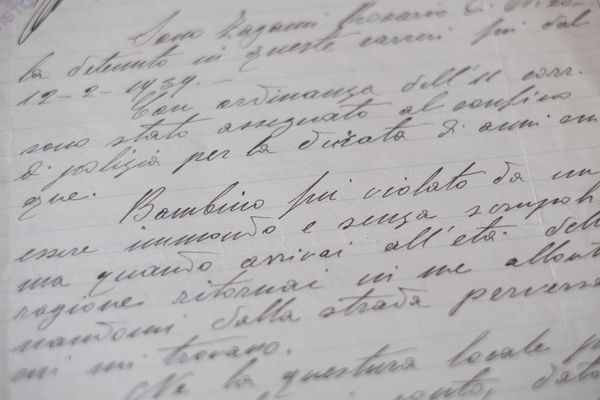 Sono Ragami Rosario di Nico-
la detenuto in queste carceri fin dal
12-2-1939.-
Con ordinanza dell'11 corr.
sono stato assegnato al confino
di polizia per la durata di anni cin
que.
Bambino fui violato da un
essere immondo e senza scrupoli
ma quando arrivai all'età della
ragione ritornai in me allonta
nandomi dalla strada perversa
cui mi trovavo.
Ne la questura locale
dato